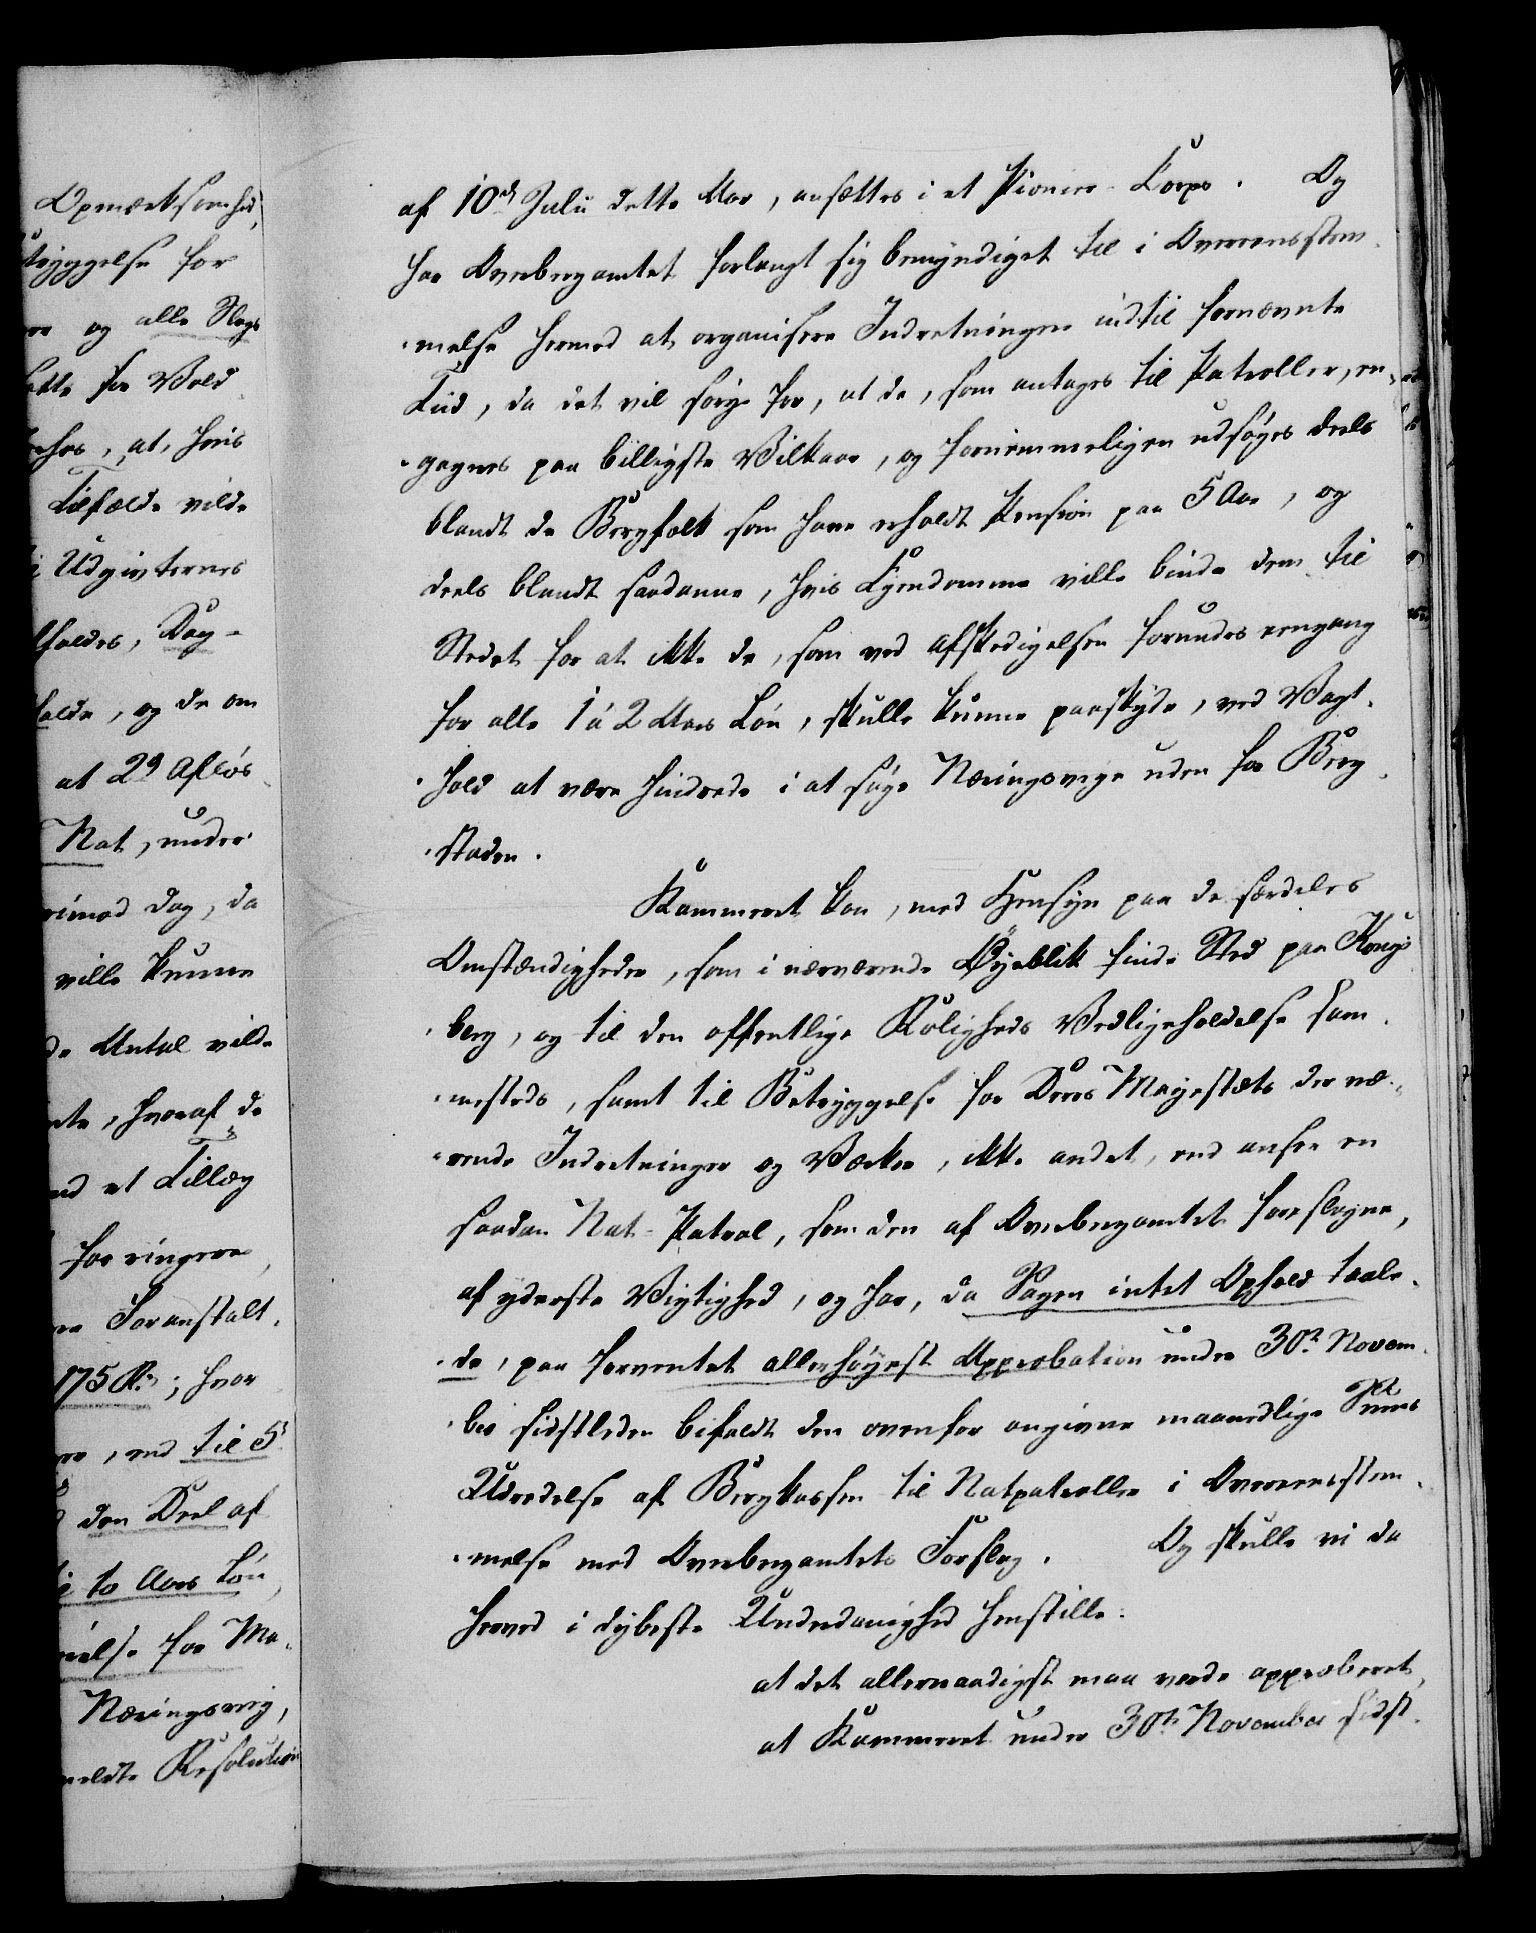 Opmærksomhed,
tryggelse for
og alle Slags
satte for Vold
at, hvis
Tilfælde vilde
i Udgivternes
holdes, Dag-
holde, og de om
at 29 Afløs
Nat, under
rimod Dag, da
ville kunne
de Antal vilde
hvoraf de
et Tillæg
for ringere,
Foranstalt.
175 Rd; hvor
end til 5
den Deel af
to Aars Løn,
relse for Ma-
Næringsvej,
meldte Resolution
af 10de Julii dette Aar, ansættes i et Pioneer-Corps. Og
har Overbergamtet forlangt sig bemyndiget til i Overeensstem-
-melse hermed at organisere Indretningen indtil fornævnte
Tiid, da det vil sørge for, at de, som antages til Patroller, en-
-gageres paa billigste Vilkaar, og fornemmeligen udsøges deels
blandt de Bergfolk som have erholdt Pension paa 5 Aar, og
deels blandt saadanne, hvis Ejendomme ville binde dem til
Stedet for at ikke de, som ved Afskedigelsen forundes eengang
for alle 1 à 2 Aars Løn, skulle kunne paaskyde, ved Vagt-
-hold at være hindrede i at søge Næringsveje uden for Berg-
-staden.
Kammeret kan, med Hensyn paa de særdeles
Omstændigheder, som i nærværende Øyeblik finde Sted paa Kongs
-berg, og til den offentlige Roligheds Vedligeholdelse sam-
-mesteds, samt til Betryggelse for Deres Majestæts der væ-
-rende Indretninger og Værker, ikke andet, end ansee en
saadan Nat-Patrol, som den af Overbergamtet foreslagne,
af yderste Vigtighed, og har, da Sagen intet Ophold taale-
-de, paa forventet allerhøyest Approbation under 30te Novem-
-ber sidstleden bifaldt den ovenfor angivne maanedlige Summes
Udredelse af Bergkassen til Natpatroller i Overeensstem-
-melse med Overbergamtets Forslag. Og skulle vi da
herved i dybeste Underdanighed henstille:
at det allernaadigst maa vorde approberet,
at Kammeret under 30te November sidst-